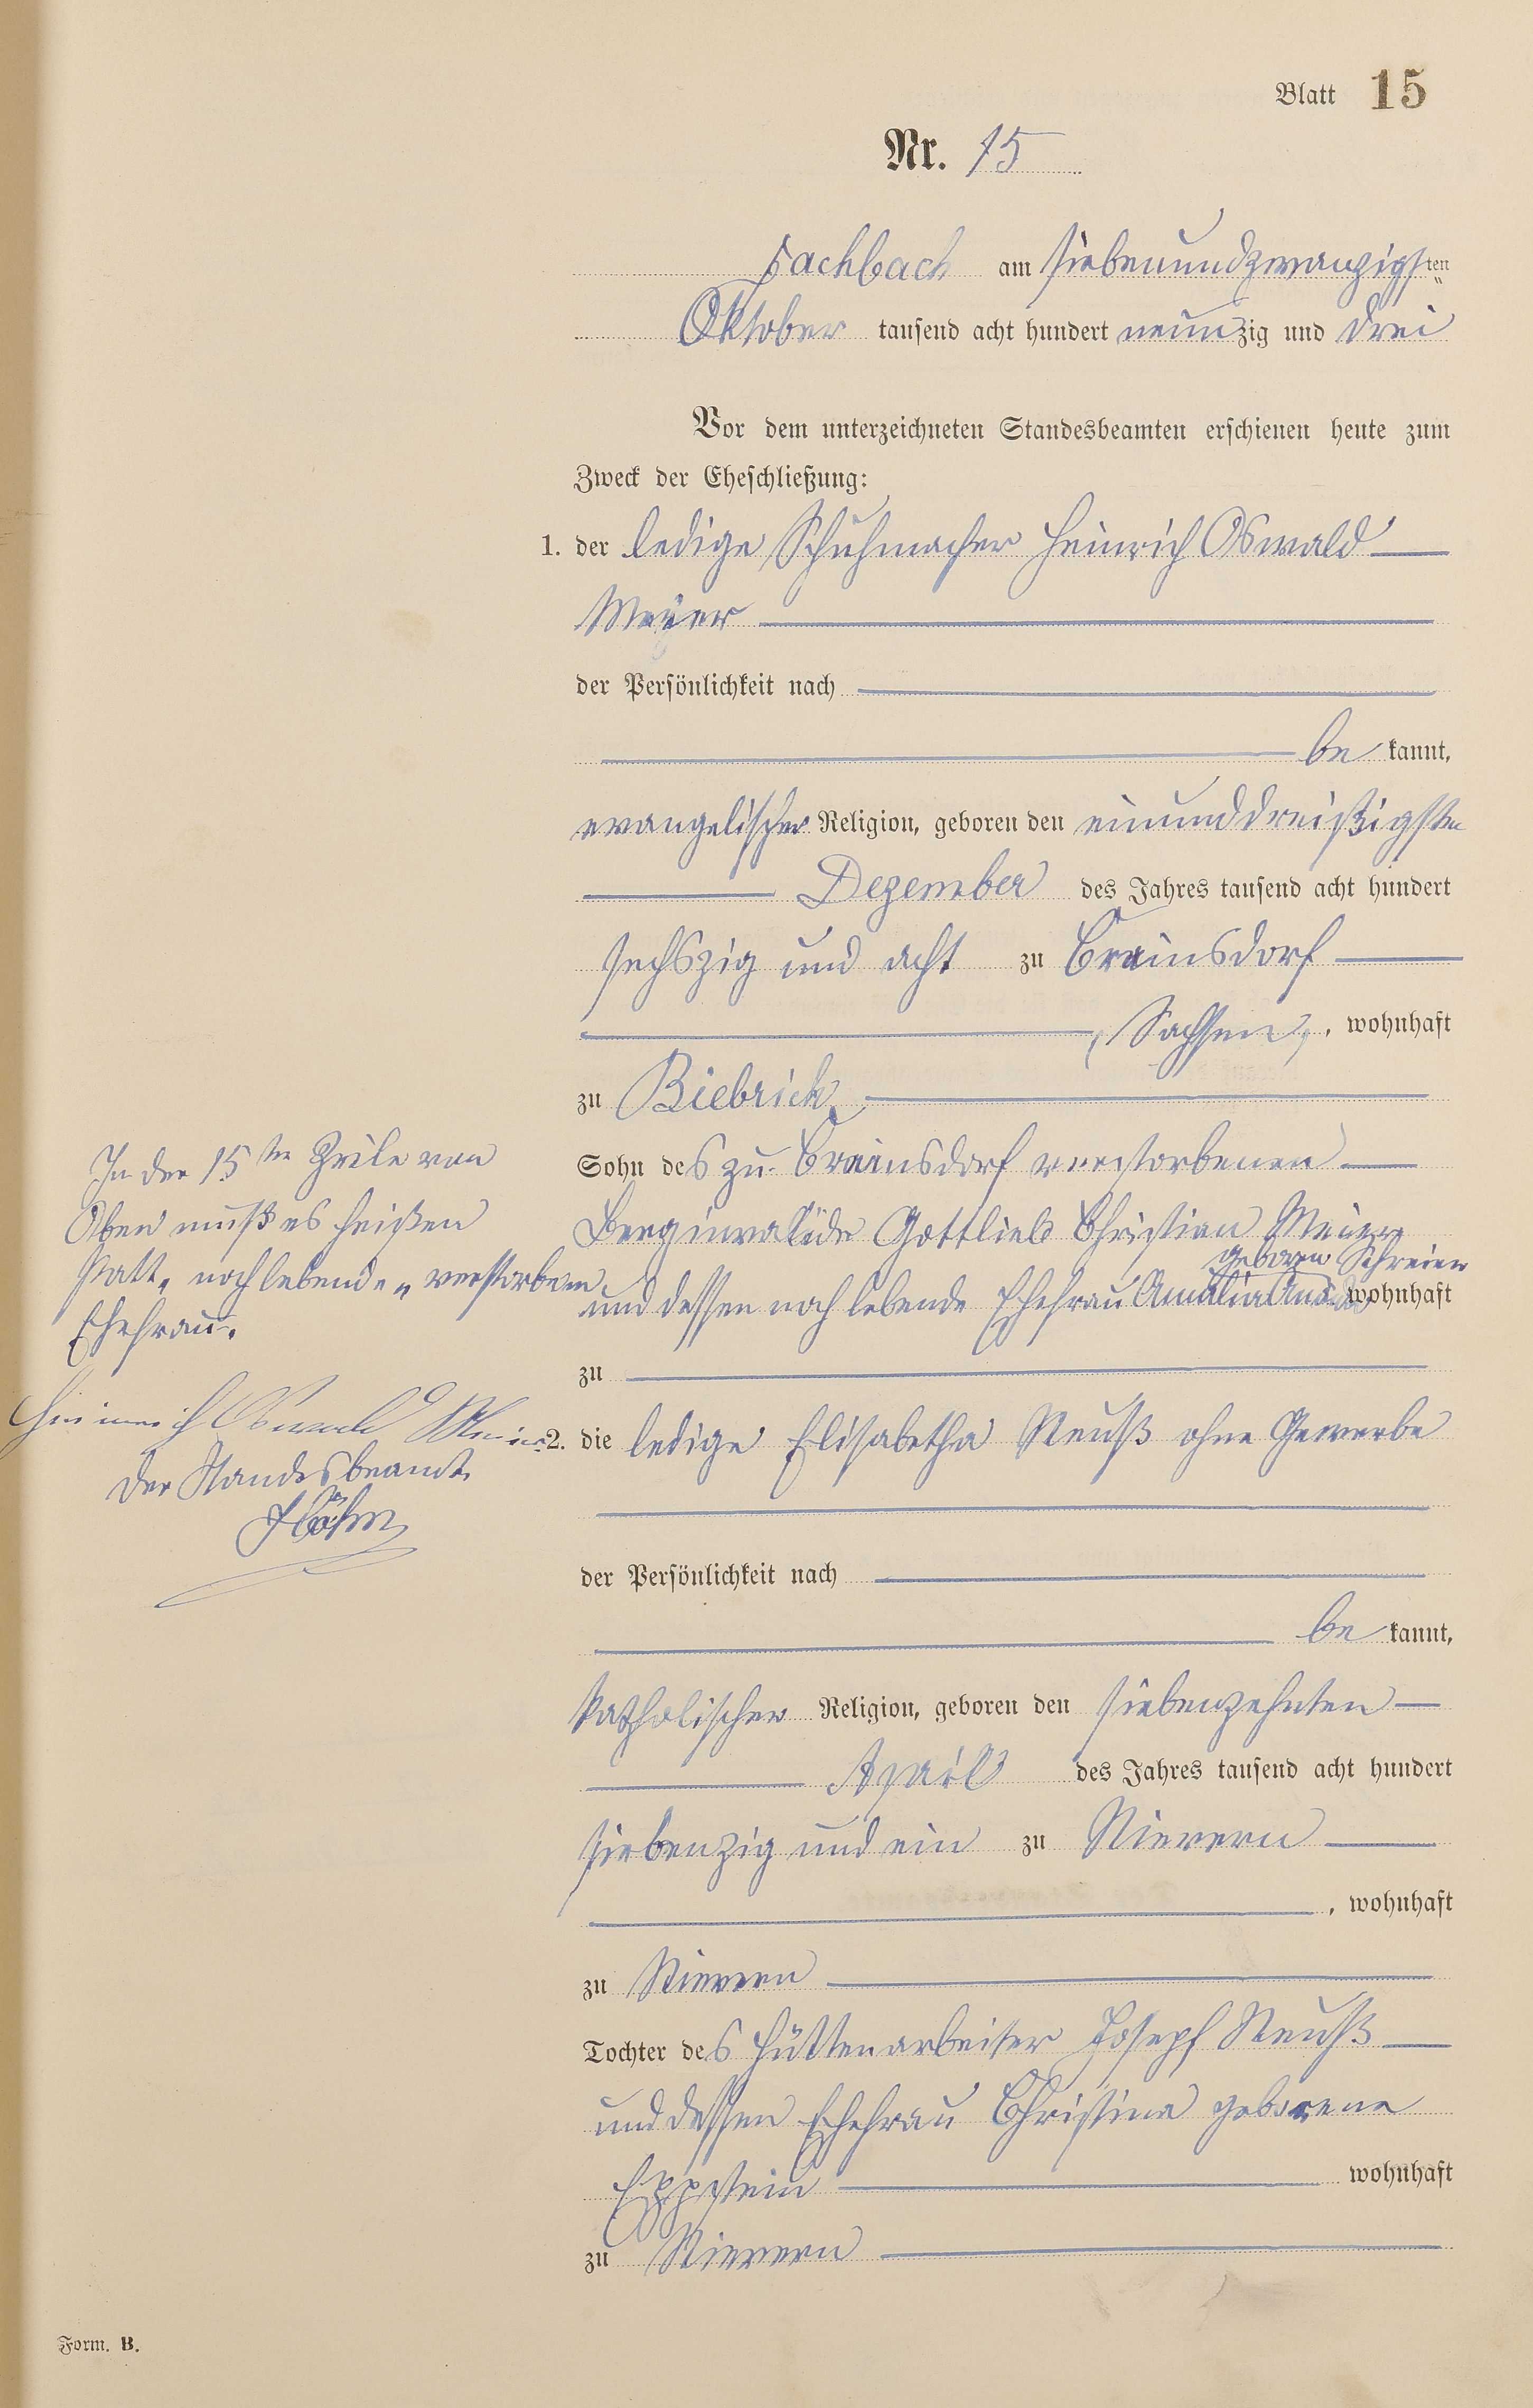 Blatt 15
Nr. 15
Fachbach am siebenundzwanzigsten
Oktober tausend acht hundert neunzig und drei
Vor dem unterzeichneten Standesbeamten erschienen heute zum
Zweck der Eheschließung:
1. der ledige Schuhmacher Heinrich Oswald
Meyer
der Persönlichkeit nach
be kannt,
evangelischer Religion, geboren den einunddreißigsten
Dezember des Jahres tausend acht hundert
sechszig und acht zu Crainsdorf
(Sachsen), wohnhaft
zu Biebrich
Sohn des zu Crainsdorf verstorbenen
Berginvalide Gottlieb Christian Meier
geboren Schreier
und dessen noch lebende Ehefrau Amalia wohnhaft
zu
In der 15ten Zeile von
Oben muß es heißen
statt „noch lebende„ verstorbene
Ehefrau.
Heinrich Oswald Meier
Der Standesbeamte
2. die ledige Elisabetha Neuß ohne Gewerbe
der Persönlichkeit nach
be kannt,
katholischer Religion, geboren den siebenzehnten
April des Jahres tausend acht hundert
siebenzig und ein zu Nievern
, wohnhaft
zu Nievern
Tochter des Hüttenarbeiter Joseph Neuß
und dessen Ehefrau Christina geborene
Eppstein wohnhaft
zu Nievern
Form. B.